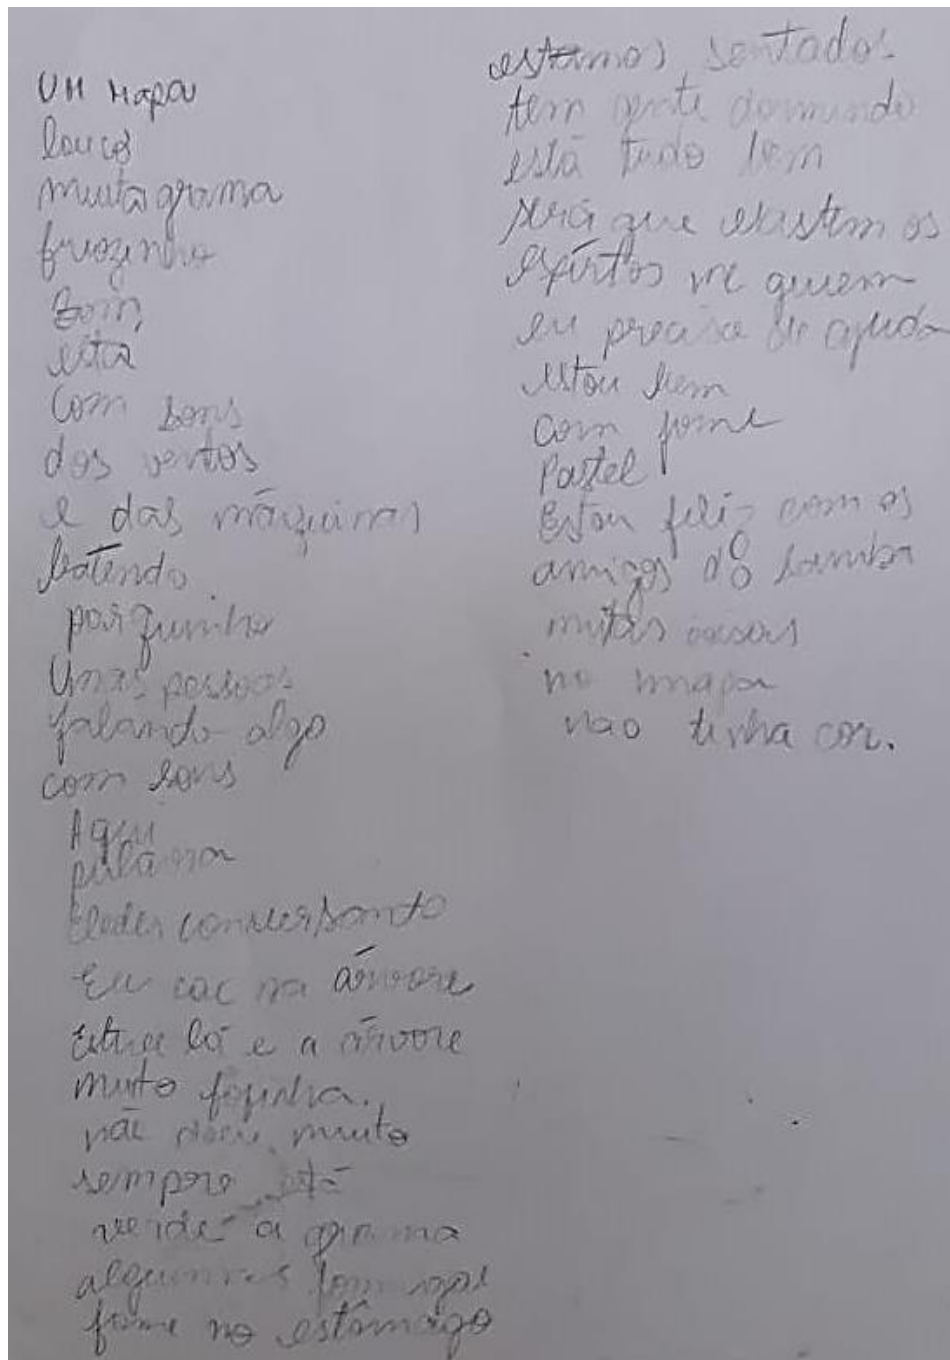 UM Mapa
louco
muita grama
friozinho
Bom,
esta
com sons
dos ventos
e das máquinas
batendo
porquinho
Umas pessoas
falando algo
com sons
Aqui
conversando
Eu caí na árvore
Estive lá e a árvore
muito fofinha.
não doeu muito
sempre está
verde a grama
algumas formigas
fome no estômago
estamos sentados
tem gente dormindo
está tudo bem
será que existem os
me
eu preciso de ajuda
estou bem
com fome
Pastel
Estou feliz com os
amigos do samba
mutas coisas
no mapa
nao tinha cor.